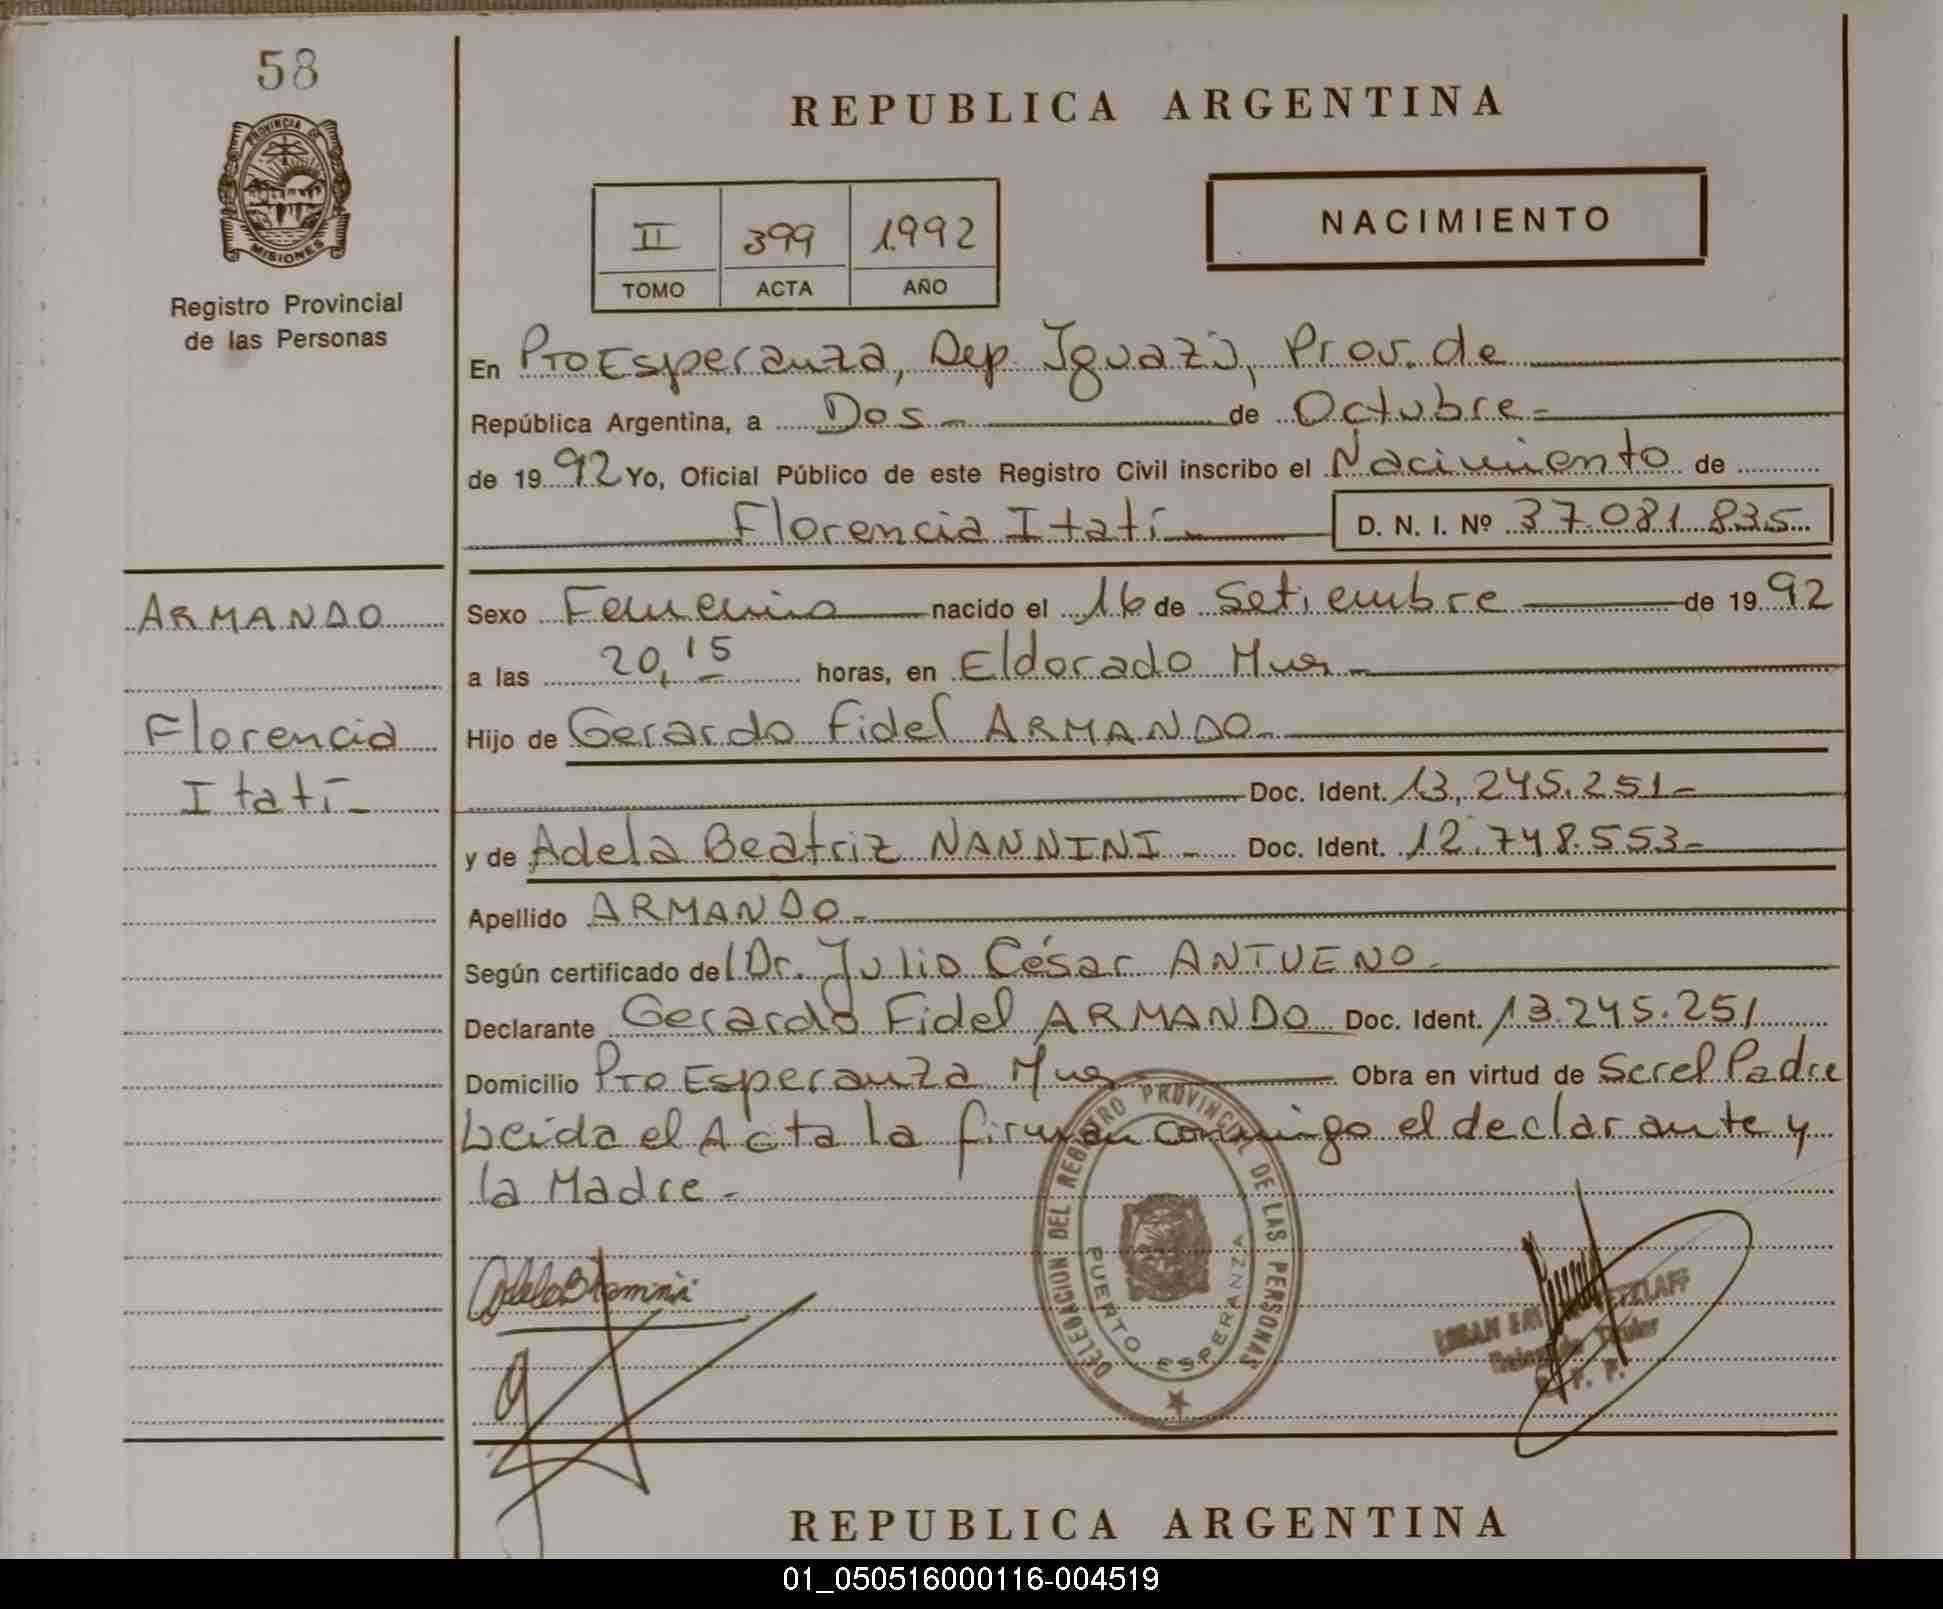 58
PROVINCIA DE
MISIONES
Registro Provincial
de las Personas
REPUBLICA ARGENTINA
II 399 1992
TOMO ACTA AÑO
NACIMIENTO
En Pto Esperanza, Dep. Iguazú, Prov. de
República Argentina, a Dos de Octubre
de 1992 Yo, Oficial Público de este Registro Civil inscribo el Nacimiento de
Florencia Itatí D. N. I. Nº 37.081.835
ARMANDO
Florencia
Itatí
Sexo Femenino nacido el 16 de Setiembre de 1992
a las 20,15 horas, en Eldorado Mnes
Hijo de Gerardo Fidel ARMANDO
Doc. Ident. 13,245.251
y de Adela Beatriz NANNINI Doc. Ident. 12.748.553
Apellido ARMANDO
Según certificado del Dr. Julio César ANTUENO
Declarante Gerardo Fidel ARMANDO Doc. Ident. 13.245.251
Domicilio Pto Esperanza Mnes Obra en virtud de Ser el Padre
Leida el Acta la firman conmigo el declarante y
la Madre
DELEGACION DEL REGISTRO PROVINCIAL DE LAS PERSONAS
PUERTO ESPERANZA
Titular
REPUBLICA ARGENTINA
01_050516000116-004519